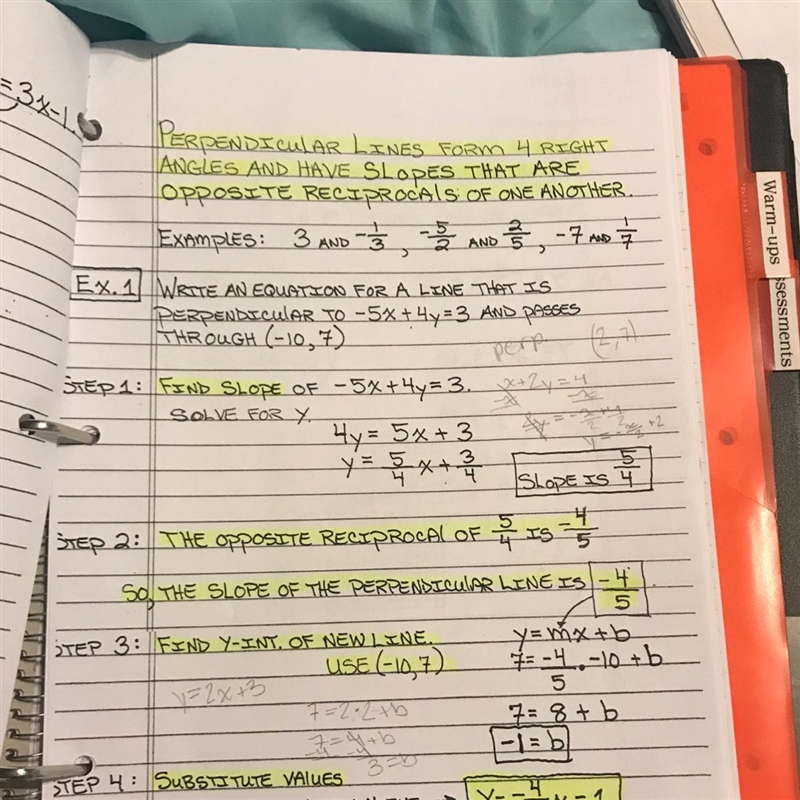 =3x-1.
PERPENDICULAR LINES FORM 4 RIGHT
ANGLES AND HAVE SLOPES THAT ARE
OPPOSITE RECIPROCALS OF ONE ANOTHER.
EXAMPLES: 3 AND -1/3, -5/2 AND 2/5, -7 AND 1/7
Warm-ups
ssessments
EX. 1 WRITE AN EQUATION FOR A LINE THAT IS
PERPENDICULAR TO -5x+4y=3 AND PASSES
THROUGH (-10,7)
perp. (2,7)
STEP 1: FIND SLOPE OF -5x+4y=3.
x+2y=4
SOLVE FOR Y.
4y = 5x + 3
y = 5/4 x + 3/4
SLOPE IS 5/4
STEP 2: THE OPPOSITE RECIPROCAL OF 5/4 IS -4/5
SO, THE SLOPE OF THE PERPENDICULAR LINE IS -4/5
STEP 3: FIND Y-INT. OF NEW LINE.
USE (-10,7)
y=mx+b
7= -4/5 · -10 + b
7= 8 + b
-1 = b
y=2x+3
7=2·2+b
7=4+b
3=b
STEP 4: SUBSTITUTE VALUES